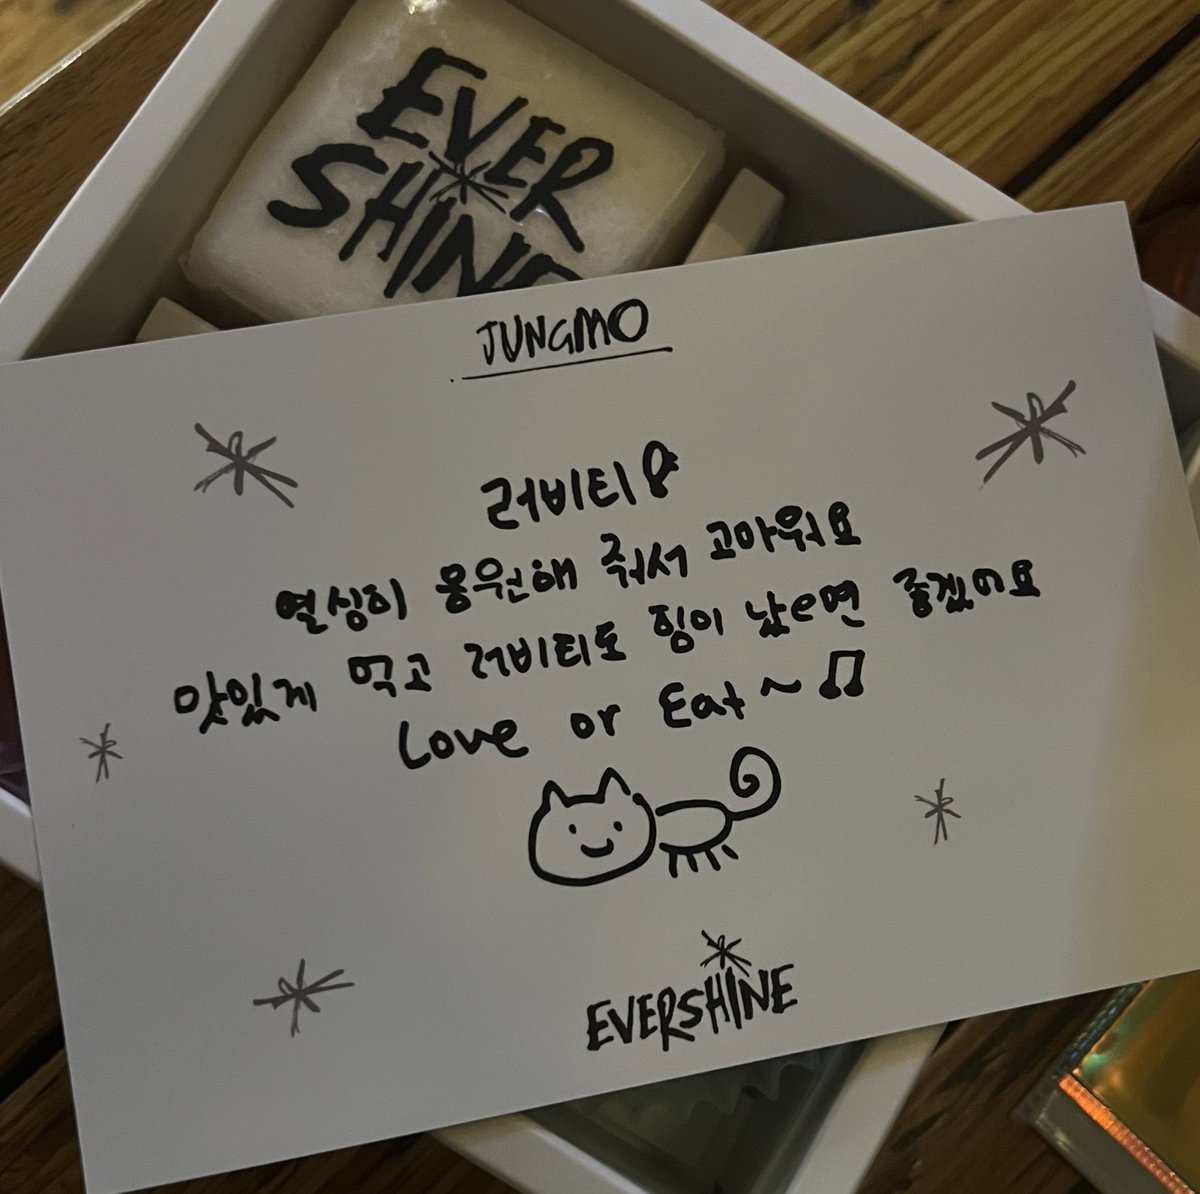 EVER
SHINE
JUNGMO
러비티
열심히 응원해 줘서 고마워요
맛있게 먹고 러비티도 힘이 났으면 좋겠어요
Love or Eat~
EVERSHINE